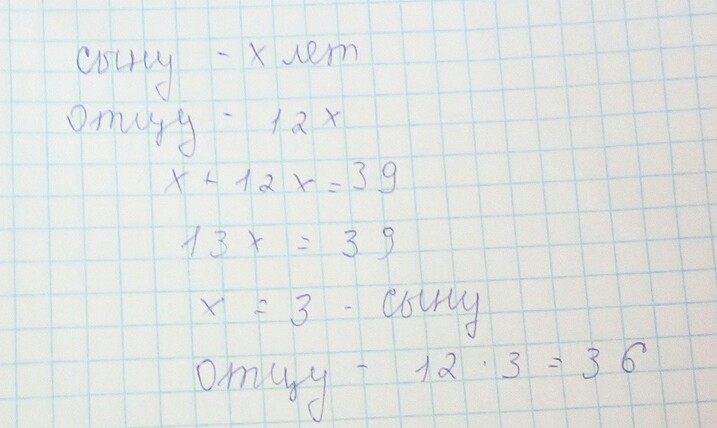 сыну - x лет
отцу - 12x
x + 12x = 39
13x = 39
x = 3 - сыну
отцу - 12 · 3 = 36